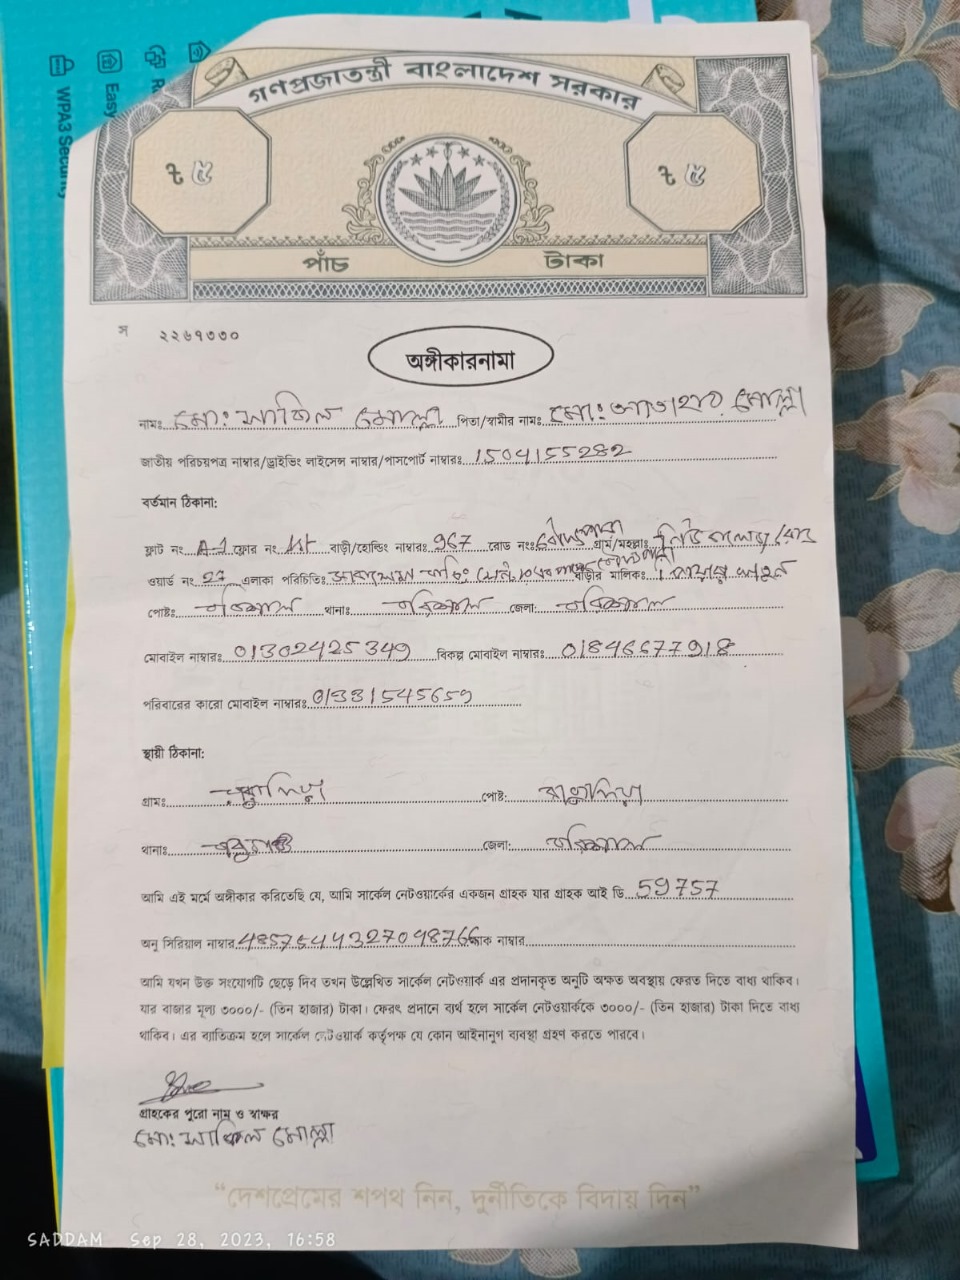 WPA3 Security
Easy
গণপ্রজাতন্ত্রী বাংলাদেশ সরকার
৳ ৫
৳ ৫
পাঁচ টাকা
স ২২৬৭৩৩০
অঙ্গীকারনামা
নামঃ মোঃ সাকিল মোল্লা পিতা/স্বামীর নামঃ মোঃ আজাহার মোল্লা
জাতীয় পরিচয়পত্র নাম্বার/ড্রাইভিং লাইসেন্স নাম্বার/পাসপোর্ট নাম্বারঃ 1504155282
বর্তমান ঠিকানা:
ফ্লাট নং A-1 ফ্লোর নং 1st বাড়ী/হোল্ডিং নাম্বারঃ 967 রোড নংঃ গ্রাম/মহল্লাঃ
ওয়ার্ড নং 27 এলাকা পরিচিতিঃ বাড়ীর মালিকঃ
পোষ্টঃ বরিশাল থানাঃ বরিশাল জেলা: বরিশাল
মোবাইল নাম্বারঃ 01302425349 বিকল্প মোবাইল নাম্বারঃ 01846677918
পরিবারের কারো মোবাইল নাম্বারঃ
স্থায়ী ঠিকানা:
গ্রামঃ পোষ্ট:
থানাঃ জেলা: বরিশাল
আমি এই মর্মে অঙ্গীকার করিতেছি যে, আমি সার্কেল নেটওয়ার্কের একজন গ্রাহক যার গ্রাহক আই ডি 59757
অনু সিরিয়াল নাম্বার 4857544327098766 ম্যাক নাম্বার
আমি যখন উক্ত সংযোগটি ছেড়ে দিব তখন উল্লেখিত সার্কেল নেটওয়ার্ক এর প্রদানকৃত অনুটি অক্ষত অবস্থায় ফেরত দিতে বাধ্য থাকিব।
যার বাজার মূল্য ৩০০০/- (তিন হাজার) টাকা। ফেরৎ প্রদানে ব্যর্থ হলে সার্কেল নেটওয়ার্ককে ৩০০০/- (তিন হাজার) টাকা দিতে বাধ্য
থাকিব। এর ব্যতিক্রম হলে সার্কেল নেটওয়ার্ক কর্তৃপক্ষ যে কোন আইনানুগ ব্যবস্থা গ্রহণ করতে পারবে।
গ্রাহকের পুরো নাম ও স্বাক্ষর
মোঃ সাকিল মোল্লা
“দেশপ্রেমের শপথ নিন, দুর্নীতিকে বিদায় দিন”
SADDAM Sep 28, 2023, 16:58